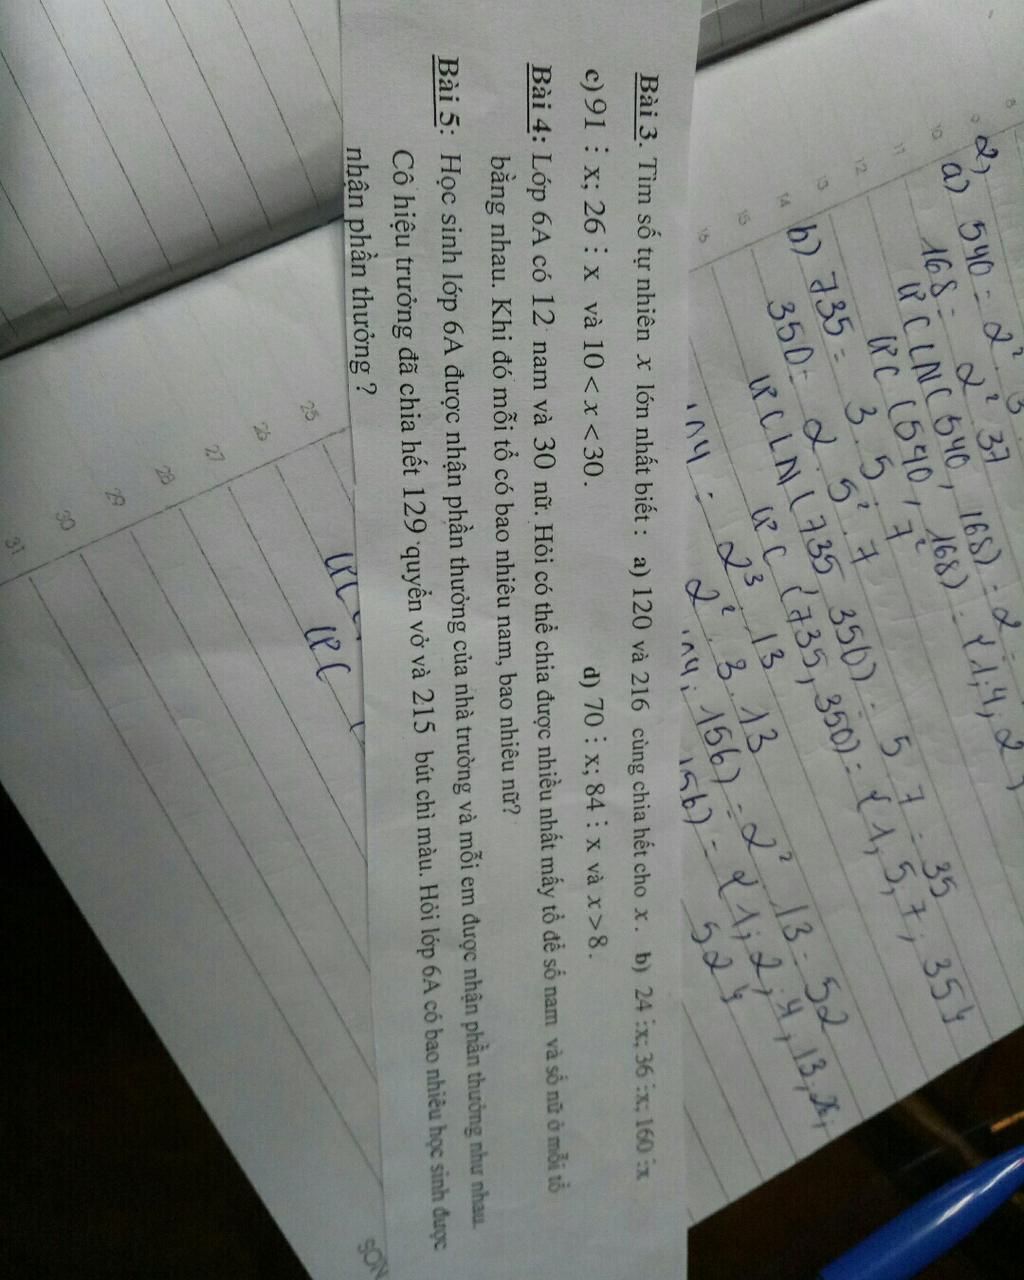 2)
a) 540 = 2² 3
168 = 2² 37
ƯCLN (540, 168) = 2
ƯC (540, 168) = {1, 4, 2
b) 735 = 3 . 5 . 7²
350 = 2 . 5² . 7
ƯCLN (735 350) = 5 7 = 35
ƯC (735, 350) = {1, 5, 7, 35}
2³ . 13
2² . 3 . 13
156) = 2² 13 = 52
= {1; 2; 4, 13,
52}
Bài 3. Tìm số tự nhiên x lớn nhất biết : a) 120 và 216 cùng chia hết cho x . b) 24 ⋮x; 36 ⋮x; 160 ⋮x
c) 91 ⋮ x; 26 ⋮ x và 10 < x < 30. d) 70 ⋮ x; 84 ⋮ x và x > 8.
Bài 4: Lớp 6A có 12 nam và 30 nữ. Hỏi có thể chia được nhiều nhất mấy tổ để số nam và số nữ ở mỗi tổ
bằng nhau. Khi đó mỗi tổ có bao nhiêu nam, bao nhiêu nữ?
Bài 5: Học sinh lớp 6A được nhận phần thưởng của nhà trường và mỗi em được nhận phần thưởng như nhau.
Cô hiệu trưởng đã chia hết 129 quyển vở và 215 bút chì màu. Hỏi lớp 6A có bao nhiêu học sinh được
nhận phần thưởng ?
ƯC
8
9
10
11
12
13
14
15
16
25
26
27
28
29
30
31